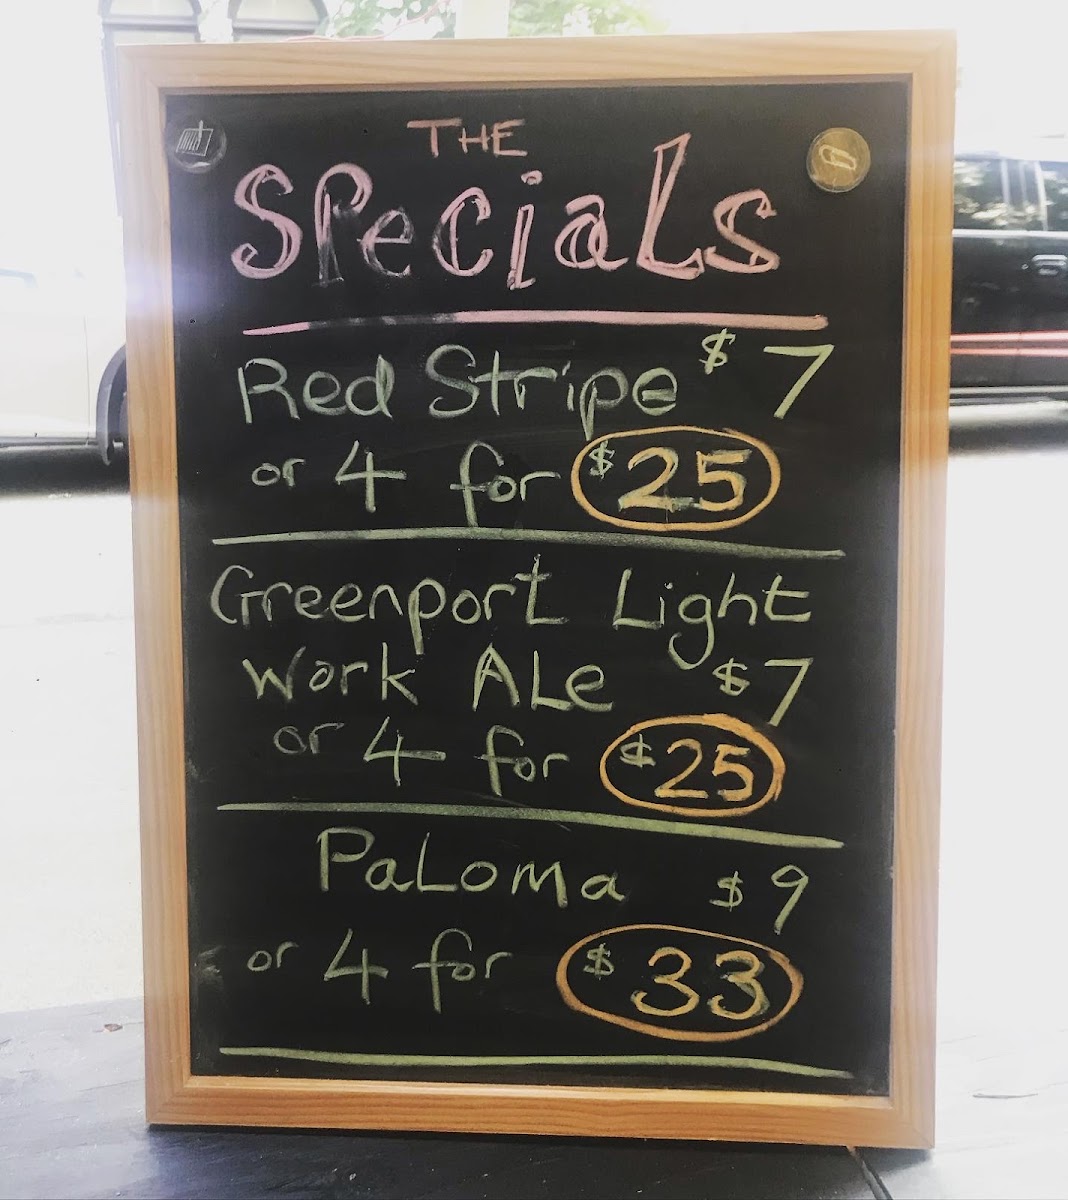 THE
Specials
Red Stripe $7
or 4 for $25
Greenport Light
Work ALe $7
or 4 for $25
PaLoma $9
or 4 for $33